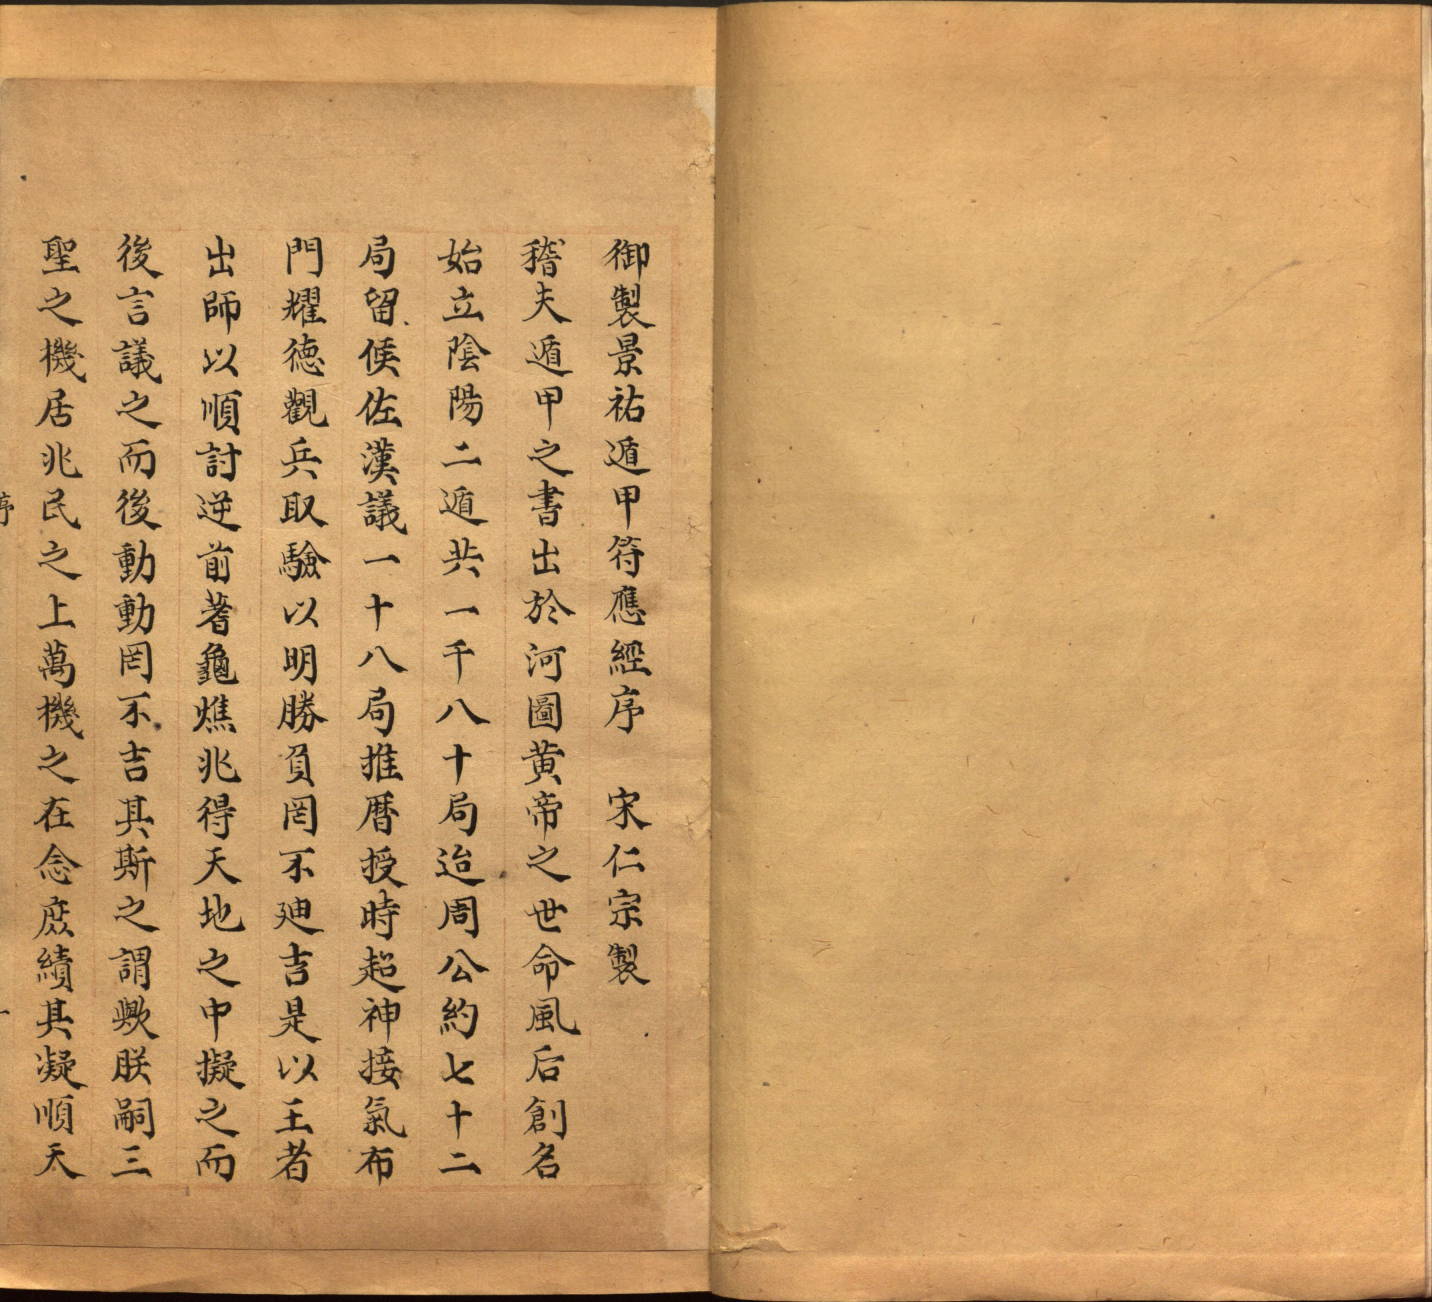 御製景祐遁甲符應經序　宋仁宗製
稽夫遁甲之書出於河圖黄帝之世命風后創名
始立陰陽二遁共一千八十局迨周公約七十二
局留侯佐漢議一十八局推曆授時超神接氣布
門耀德觀兵取驗以明勝負罔不廸吉是以王者
出師以順討逆前蓍龜燋兆得天地之中擬之而
後言議之而後動動罔不吉其斯之謂歟朕嗣三
聖之機居兆民之上萬機之在念庶績其凝順天
序
一